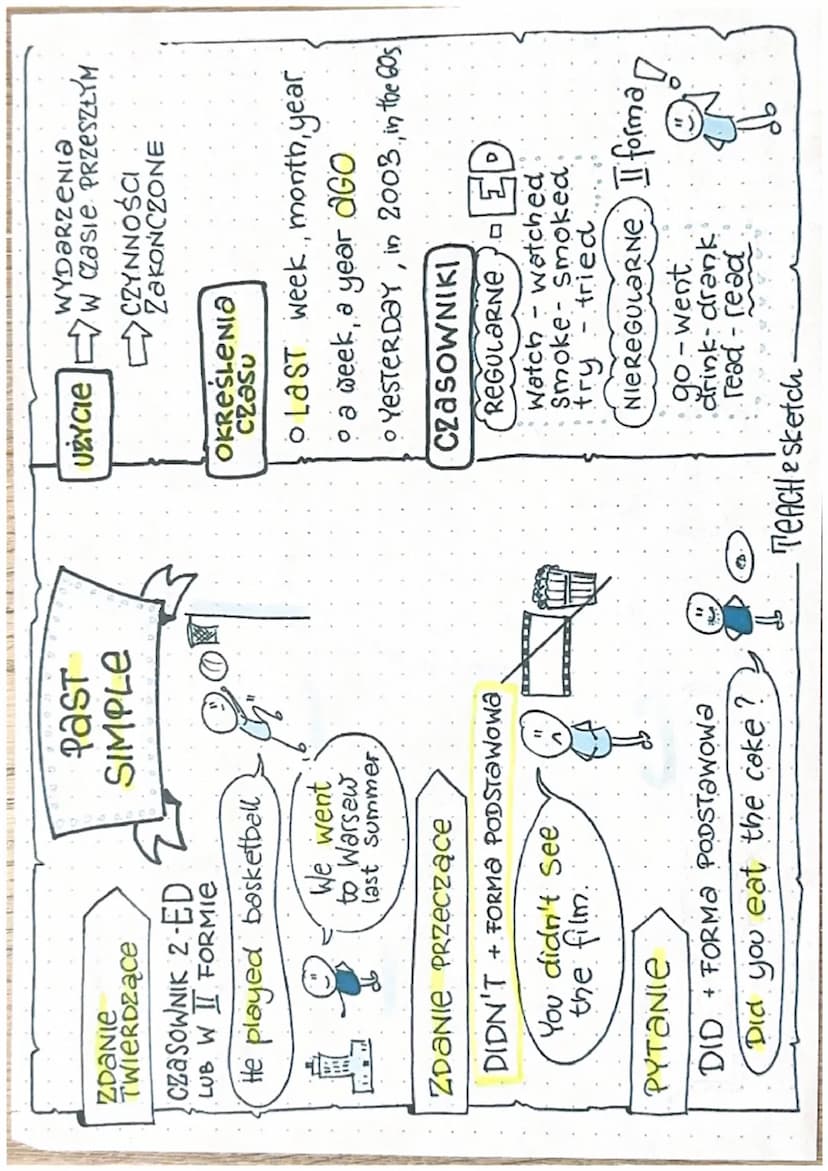 PAST
SIMPLE
ZDANIE
TWIERDZĄCE
CZASOWNIK Z -ED
LUB W II FORMIE
He played basketball
We went
to Warsew
last summer
ZDANIE PRZECZĄCE
DIDN'T + FORMA PODSTAWOWA
You didn't see
the film.
PYTANIE
DID + FORMA PODSTAWOWA
Did you eat the cake?
UŻYCIE
WYDARZENIA
W CZASIE PRZESZŁYM
CZYNNOŚCI
ZAKOŃCZONE
OKREŚLENIA
CZASU
LAST week, month, year
a week, a year AGO
YESTERDAY, in 2003, in the 60s
CZASOWNIKI
REGULARNE -ED
watch - watched
smoke - smoked
try - tried
NIEREGULARNE II forma!
go - went
drink - drank
read - read
TEACH & SKETCH